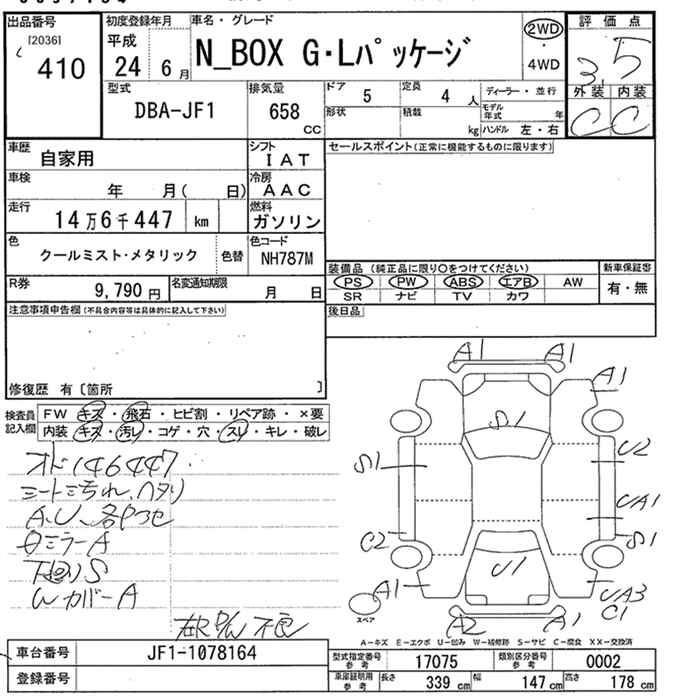 出品番号
[2036]
410
初度登録年月
平成
24 6 月
車名・グレード
N_BOX G・Lパッケージ
2WD
・
4WD
評価点
3.5
外装 内装
C C
型式
DBA-JF1
排気量
658
CC
ドア
5
形状
定員
4 人
積載
kg
ディーラー・並行
モデル年式 年
ハンドル 左・右
車歴
自家用
シフト
IAT
セールスポイント(正常に機能するものに限ります)
車検
年 月( 日)
冷房
AAC
走行
14万6千447 km
燃料
ガソリン
色
クールミスト・メタリック
色替
色コード
NH787M
装備品 (純正品に限り○をつけてください)
PS PW ABS エアB AW
SR ナビ TV カワ
新車保証書
有・無
R券
9,790 円
名変通知期限
月 日
後日品
注意事項申告欄(不具合内容等は具体的に記入して下さい)
修復歴 有〔箇所 〕
検査員
記入欄
FW キズ・飛石・ヒビ割・リペア跡・×要
内装 キズ・汚レ・コゲ・穴・スレ・キレ・破レ
オド146447
シートミぢれ、ヘタリ
A、U、各部
ミラーA
下回りS
Wカバー A
不良
A1 A1
A1
S1
S1
U2
UA1
S1
C2
U1
A1
UA3
C1
A2 A1
スペア
A-キズ E-エクボ U-凹み W-補修跡 S-サビ C-腐食 XX-交換済
車台番号
JF1-1078164
登録番号
型式指定番号
参考
17075
類別区分番号
参考
0002
車庫証明用
参考
長さ 339 cm
幅 147 cm
高さ 178 cm